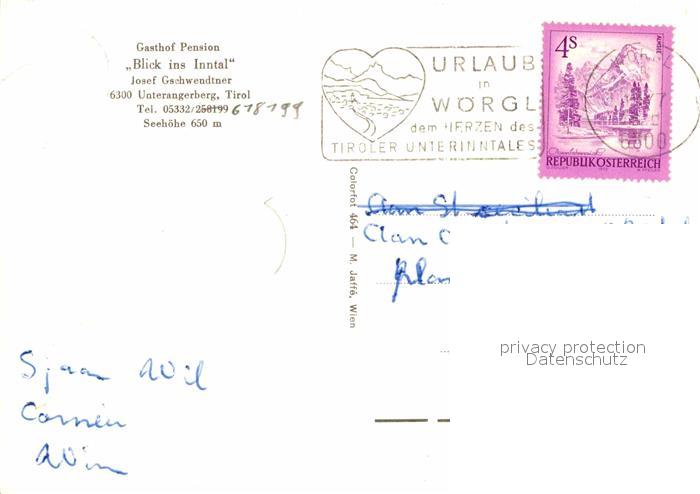 Gasthof Pension
„Blick ins Inntal"
Josef Gschwendtner
6300 Unterangerberg, Tirol
Tel. 05332/258199 618199
Seehöhe 650 m
URLAUB
in
WÖRGL
dem HERZEN des
TIROLER UNTERINNTALES
4S
ALMSEE
REPUBLIK ÖSTERREICH
6300
Colorfot 464 — M. Jaffé, Wien
privacy protection
Datenschutz
Sjaan Wil
Corrien
Wim